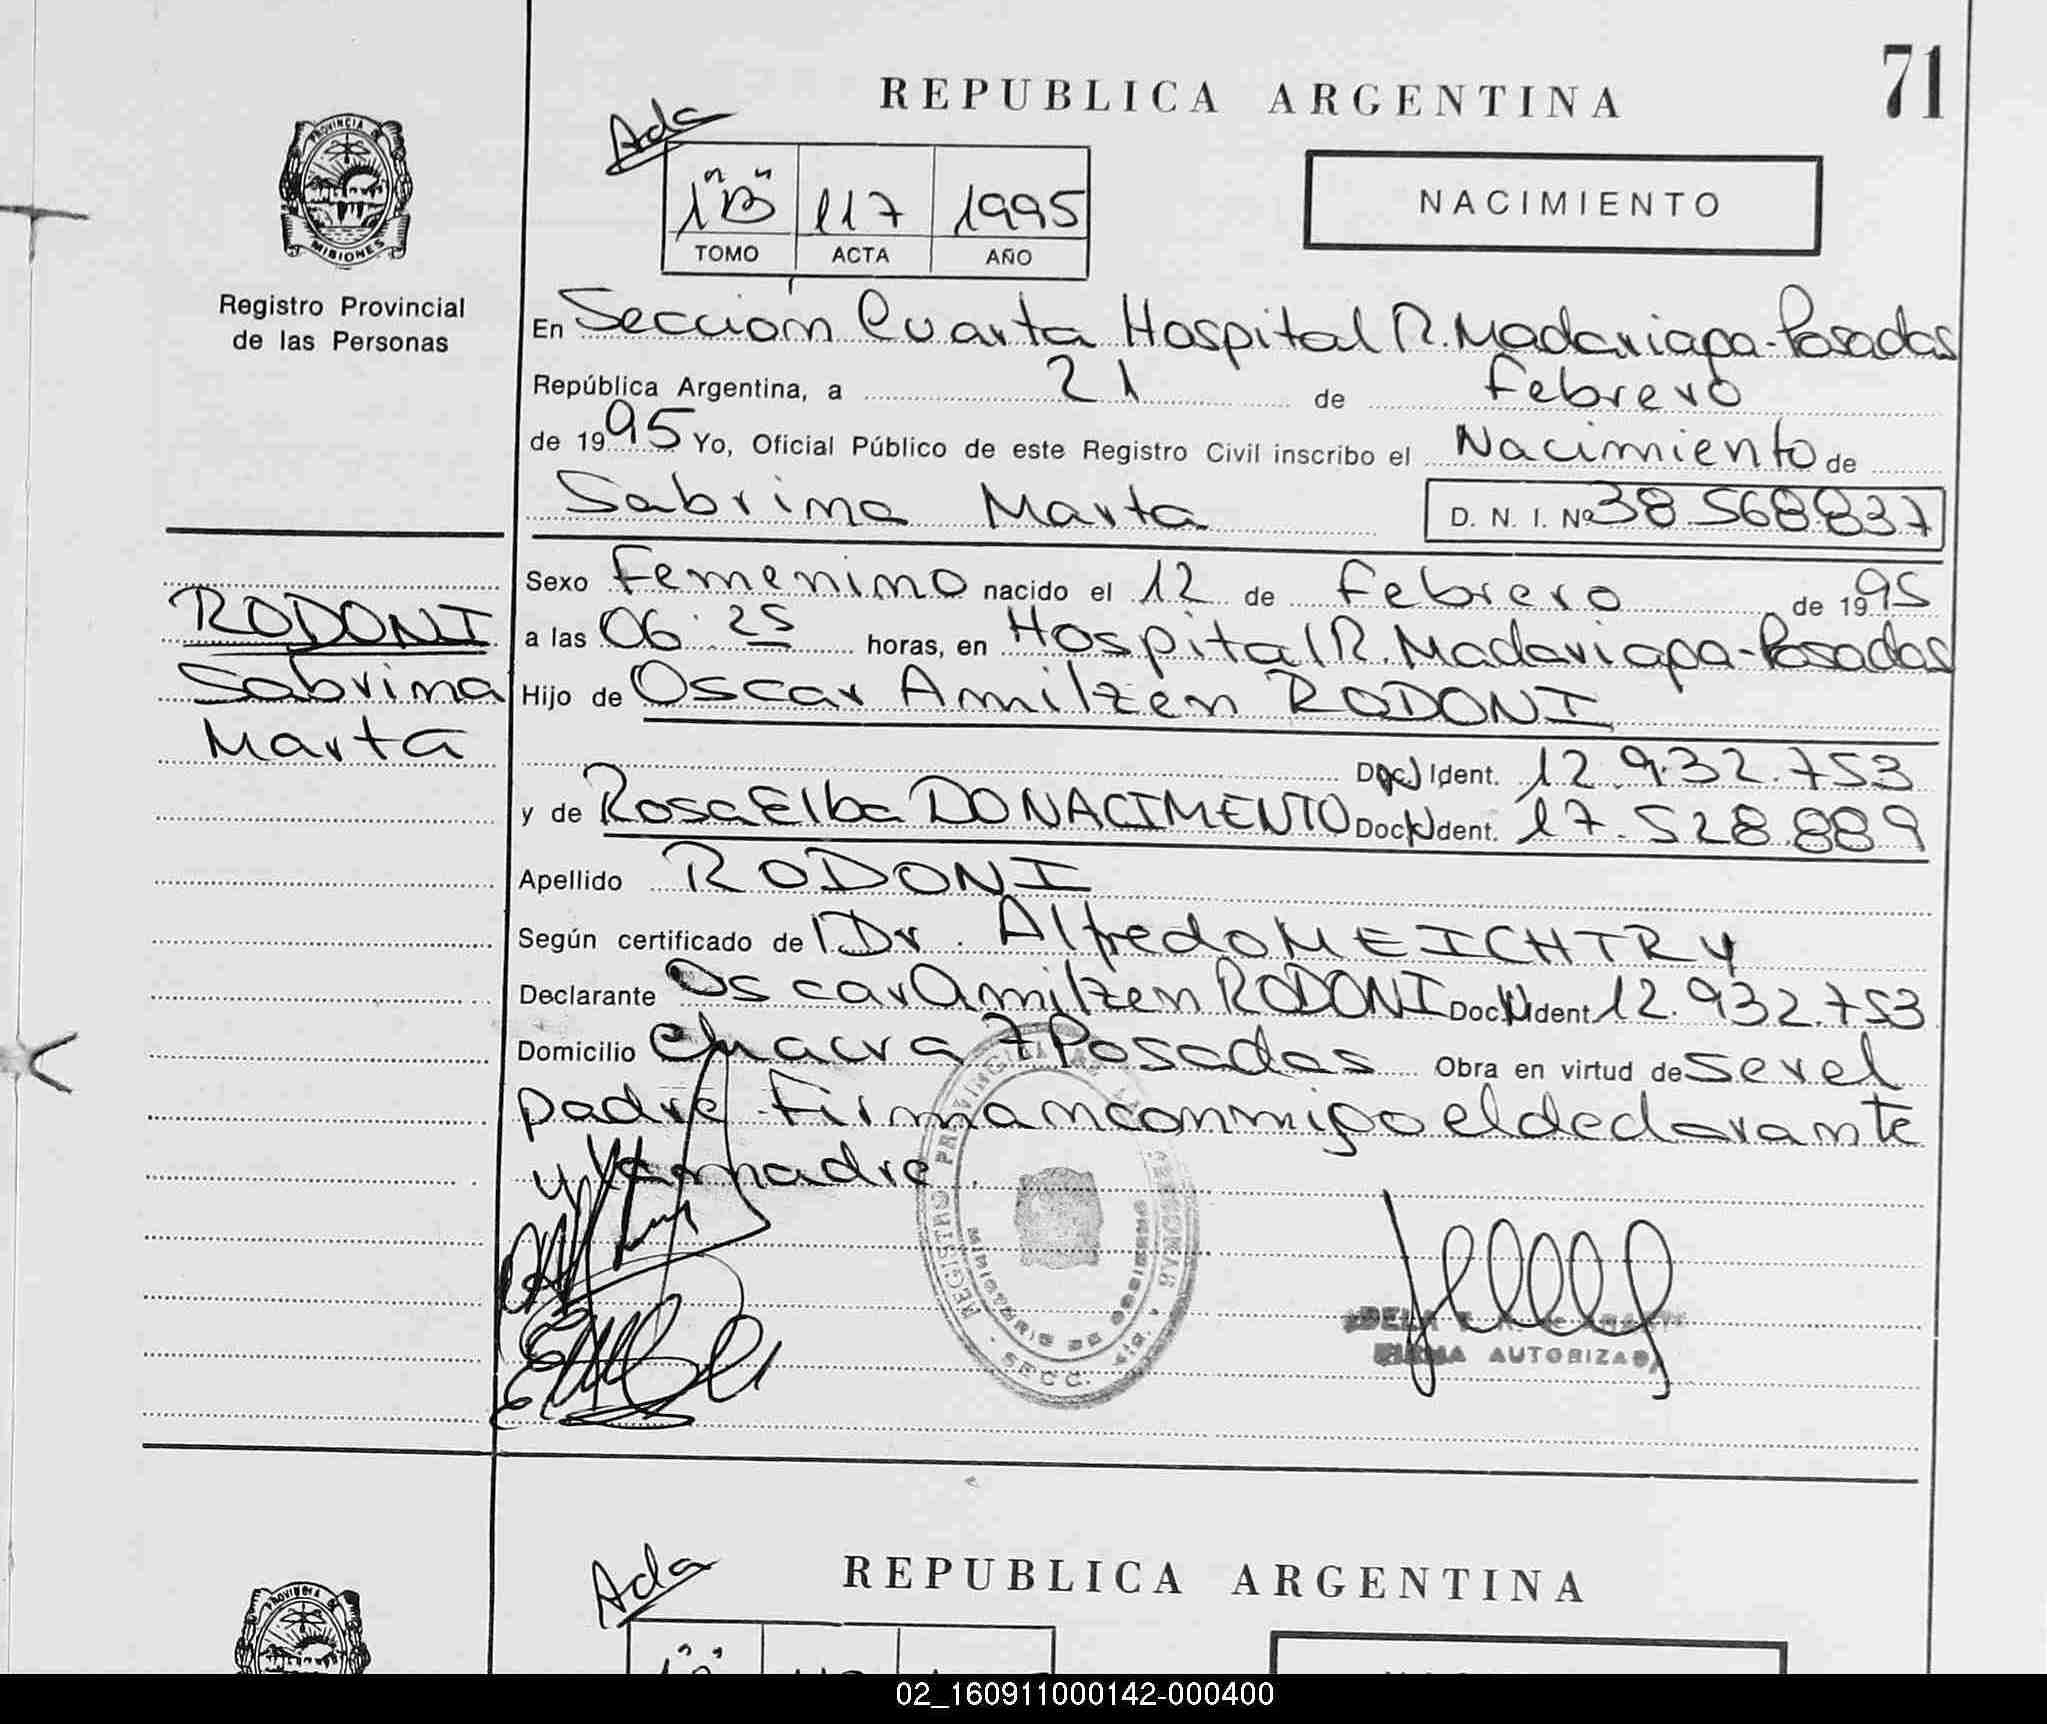 71
REPUBLICA ARGENTINA
Ada
1 "B" 117 1995
TOMO ACTA AÑO
NACIMIENTO
PROVINCIA DE
MISIONES
Registro Provincial
de las Personas
En Sección Cuarta Hospital R. Madariaga-Posadas
República Argentina, a 21 de Febrero
de 1995 Yo, Oficial Público de este Registro Civil inscribo el Nacimiento de
Sabrina Marta D. N. I. Nº 38.568.837
Sexo Femenino nacido el 12 de Febrero de 1995
a las 06:25 horas, en Hospital R. Madariaga-Posadas
Hijo de Oscar Amilzen RODONI
Doc. Ident. 12.932.753
y de Rosa Elba DONACIMENTO Doc. Ident. 17.528.889
Apellido RODONI
Según certificado de Dr. Alfredo MEICHTRY
Declarante Oscar Amilzen RODONI Doc. Ident. 12.932.753
Domicilio Chacra 7 Posadas Obra en virtud de ser el
padre. Firman conmigo el declarante
y la madre.
RODONI
Sabrina
Marta
REGISTRO PROVINCIAL DE LAS
MINISTERIO DE GOBIERNO
SECC. 4ta.
AUTORIZADA
Ada
REPUBLICA ARGENTINA
PROVINCIA DE
02_160911000142-000400